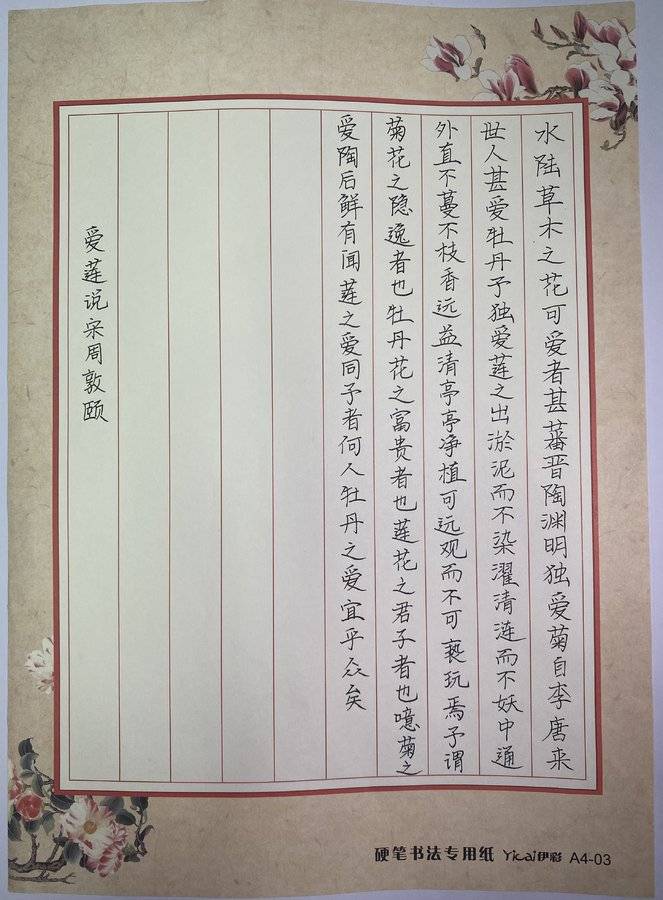 水陆草木之花可爱者甚蕃晋陶渊明独爱菊自李唐来
世人甚爱牡丹予独爱莲之出淤泥而不染濯清涟而不妖中通
外直不蔓不枝香远益清亭亭净植可远观而不可亵玩焉予谓
菊花之隐逸者也牡丹花之富贵者也莲花之君子者也噫菊之
爱陶后鲜有闻莲之爱同予者何人牡丹之爱宜乎众矣
爱莲说宋周敦颐
硬笔书法专用纸 Yicai伊彩 A4-03